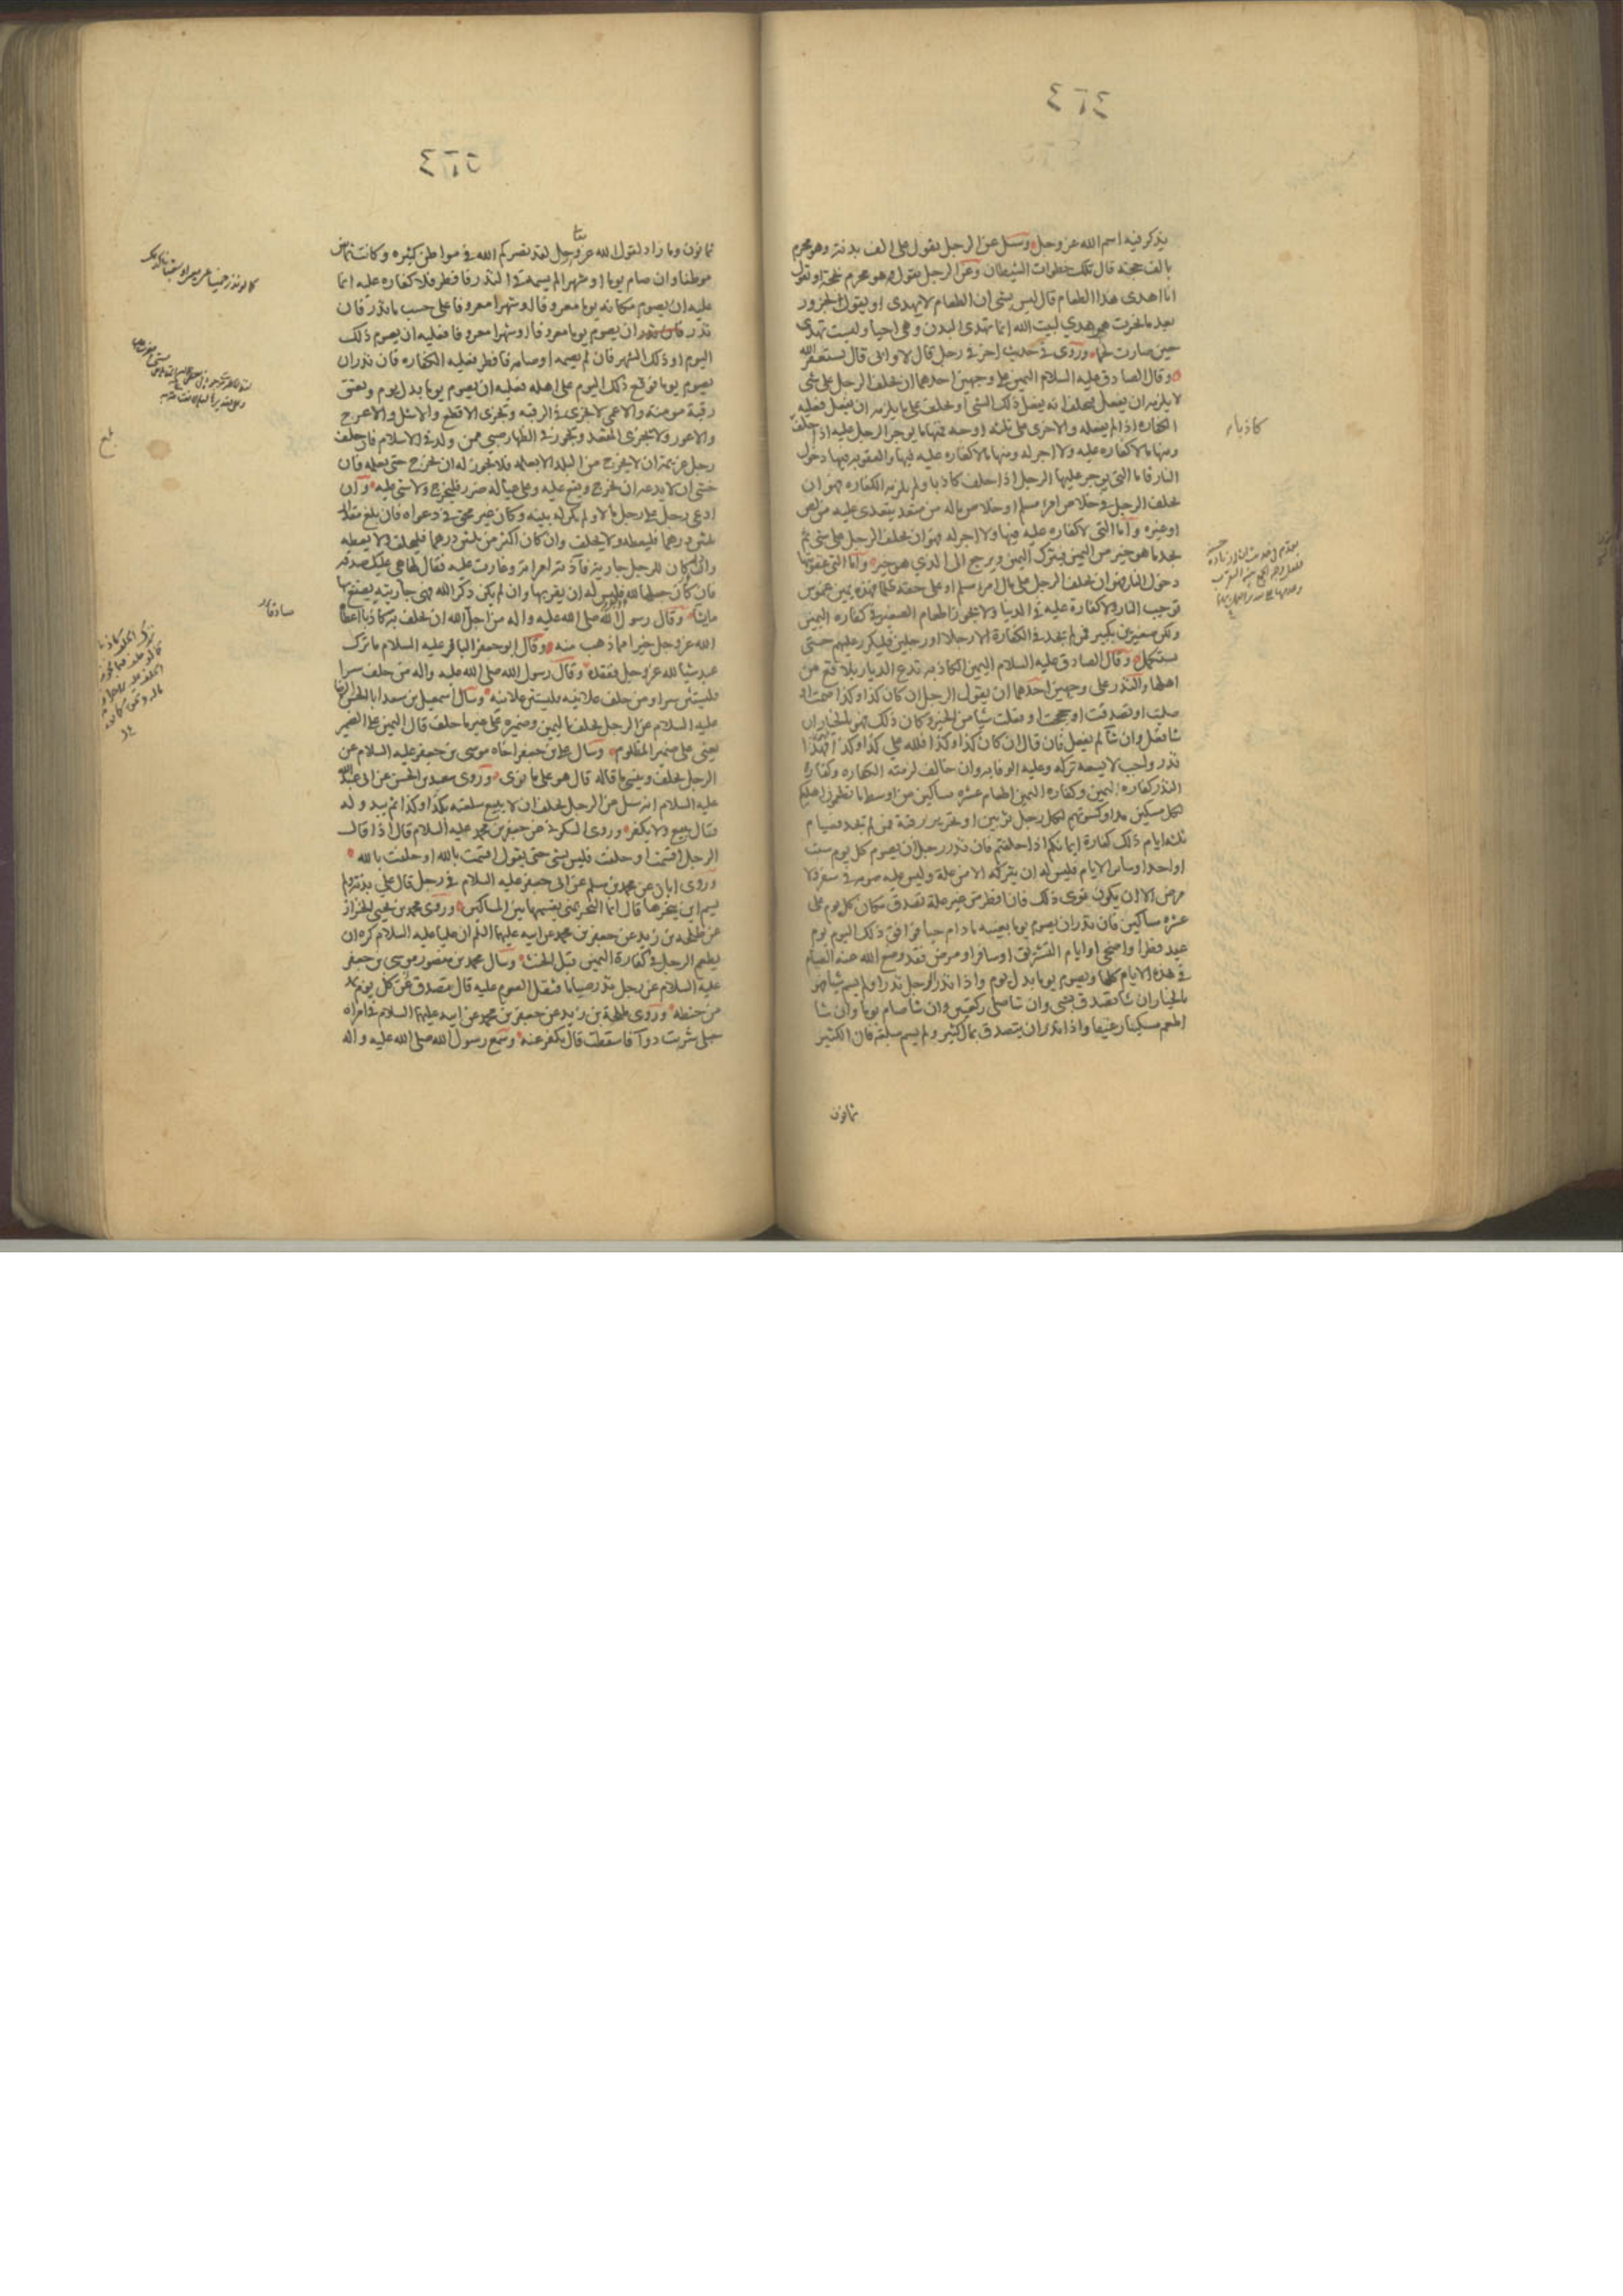 يذكر فيه اسم الله عز وجل وسئل عن الرجل يقول على الف بدنة وهو محرم
بالف حجة قال تلك خطوات الشيطان وعن الرجل يقول هو محرم بحجة او يقول
انا اهدى هذا الطعام قال ليس بشى ان الطعام لا يهدى او يقول الجزور
بعد ما نحرت هو هدي لبيت الله انما تهدى البدن وهى احيا وليست تهدى
حين صارت لحما وروى فى حديث اخر فى رجل قال لا وابى قال يستغفر الله
وقال الصادق عليه السلام اليمين على وجهين احدهما ان يحلف الرجل على شى
لا يلزمه ان يفعل فيحلف انه يفعل ذلك الشى او يحلف على ما يلزمه ان يفعل فعليه
الكفارة اذا لم يفعله والاخرى على ثلثه اوجه فمنها ما يوجر الرجل عليه اذا حلف
ومنها ما لا كفاره عليه ولا اجر له ومنها ما لا كفاره عليه فيها والعقوبه فيها دخول
النار فاما التى يوجر عليها الرجل اذا حلف كاذبا ولم يلزمه الكفاره فهو ان
يحلف الرجل فى خلاص امرء مسلم او خلاص ماله من متعد يتعدى عليه من لص
او غيره واما التى لا كفاره عليه فيها ولا اجر له فهو ان يحلف الرجل على شى ثم
يجد ما هو خير من اليمين فيترك اليمين ويرجع الى الذي هو خير واما التى عقوبتها
دخول النار فهو ان يحلف الرجل على مال امرء مسلم او على حقه ظلما فهذه يمين غموس
توجب النار ولا كفارة عليه فى الدنيا ولا يجوز اطعام الصغير فى كفاره اليمين
ولكن صغيرين بكبير فمن لم يجد فى الكفارة الا رجلا او رجلين فليكرر عليهم حتى
يستكمل وقال الصادق عليه السلام اليمين الكاذبه تدع الديار بلاقع من
اهلها والنذر على وجهين احدهما ان يقول الرجل ان كان كذا وكذا صمت او
صليت او تصدقت او حججت او فعلت شيا من الخير وكان ذلك فهو بالخيار ان
شا فعل وان شا لم يفعل فان قال ان كان كذا وكذا فلله على كذا وكذا فهذا
نذر واجب لا يسعه تركه وعليه الوفا به وان خالف لزمته الكفاره وكفارة
النذر كفاره اليمين وكفاره اليمين اطعام عشره مساكين من اوسط ما تطعمون اهليكم
لكل مسكين مد او كسوتهم لكل رجل ثوبين او تحرير رقبة فمن لم يجد فصيام
ثلثه ايام ذلك كفارة ايمانكم اذا حلفتم فان نذر رجل ان يصوم كل يوم سبت
او احد او ساير الايام فليس له ان يتركه الا من علة وليس عليه صومه فى سفر ولا
مرض الا ان يكون نوى ذلك فان افطر من غير علة تصدق مكان كل يوم على
عشره مساكين فان نذر ان يصوم يوما بعينه ما دام حيا فوافق ذلك اليوم يوم
عيد فطر او اضحى او ايام التشريق او سافر او مرض فقد وضع الله عنه الصيام
فى هذه الايام كلها ويصوم يوما بدل يوم واذا نذر الرجل نذرا ولم يسم شيا فهو
بالخيار ان شا تصدق بشى وان شا صلى ركعتين وان شا صام يوما وان شا
اطعم مسكينا رغيفا واذا نذر ان يتصدق بمال كثير ولم يسم مبلغه فان الكثير
ثمانون
كاذبا
ثمانون وما زاد لقول الله عز وجل لقد نصركم الله فى مواطن كثيره وكانت ثمانين
موطنا وان صام يوما او شهرا لم يسمه فى النذر فافطر فلا كفاره عليه انما
عليه ان يصوم مكانه يوما معروفا او شهرا معروفا على حسب ما نذر فان
نذر ان يصوم يوما معروفا او شهرا معروفا فعليه ان يصوم ذلك
اليوم او ذلك الشهر فان لم يصمه او صامه فافطر فعليه الكفاره فان نذر ان
يصوم يوما فوقع ذلك اليوم على اهله فعليه ان يصوم يوما بدل يوم ويعتق
رقبة مومنة والاعمى لا يجزى فى الرقبه ويجزى الاقطع والاشل والاعرج
والاعور ولا يجزى المقعد ويجوز فى الظهار صبى ممن ولد فى الاسلام فان حلف
رجل غريمه ان لا يخرج من البلد الا بعلمه فلا يجوز له ان يخرج حتى يعلمه فان
خشى ان لا يدعه ان يخرج ويقع عليه وعلى عياله ضرر فليخرج ولا شى عليه وان
ادعى رجل على رجل مالا ولم يكن له بينه وكان غير محق فى دعواه فان بلغ مقدار
ثلثين درهما فليعطه ولا يحلف وان كان اكثر من ثلثين درهما فليحلف ولا يعطه
وان كان للرجل جارية فآذته امراته وغارت عليه فقال لها هى عليك صدقه
فان كان جعلها لله فليس له ان يقربها وان لم يكن ذكر الله فهى جاريته يصنع بها
ما شا وقال رسول الله صلى الله عليه واله من اجل الله ان يحلف به كاذبا اعطاه
الله عز وجل خيرا مما ذهب منه وقال ابو جعفر الباقر عليه السلام ما ترك
عبد شيا لله عز وجل ففقده وقال رسول الله صلى الله عليه واله من حلف سرا
فليستثن سرا ومن حلف علانيه فليستثن علانيه وسال اسمعيل بن سعد ابا الحسن الرضا
عليه السلام عن الرجل يحلف باليمين وضميره على غير ما حلف قال اليمين على الضمير
يعنى على ضمير المظلوم وسال على بن جعفر اخاه موسى بن جعفر عليه السلام عن
الرجل يحلف وينسى ما قاله قال هو على ما نوى وروى سعد بن الحسن عن ابى عبد الله
عليه السلام انه سئل عن الرجل يحلف ان لا يبيع سلعته بكذا وكذا ثم يبدو له
قال يبيع ولا يكفر وروى السكونى عن جعفر بن محمد عليه السلام قال اذا قال
الرجل اقسمت او حلفت فليس بشى حتى يقول اقسمت بالله او حلفت بالله
وروى ابان عن محمد بن مسلم عن ابى جعفر عليه السلام فى رجل قال على بدنة ولم
يسم اين ينحرها قال انما النحر بمنى يقسمها بين المساكين وروى محمد بن يحيى الخزاز
عن طلحه بن زيد عن جعفر بن محمد عن ابيه عليهما السلام ان عليا عليه السلام كره ان
يطعم الرجل فى كفارة اليمين قبل الحنث وسال محمد بن منصور موسى بن جعفر
عليه السلام عن رجل نذر صياما فثقل الصوم عليه قال يتصدق عن كل يوم بمد
من حنطه وروى طلحة بن زيد عن جعفر بن محمد عن ابيه عليهما السلام فى امراه
حبلى شربت دوآ فاسقطت قال يكفر عنه وسمع رسول الله صلى الله عليه واله
صادقا
بلغ